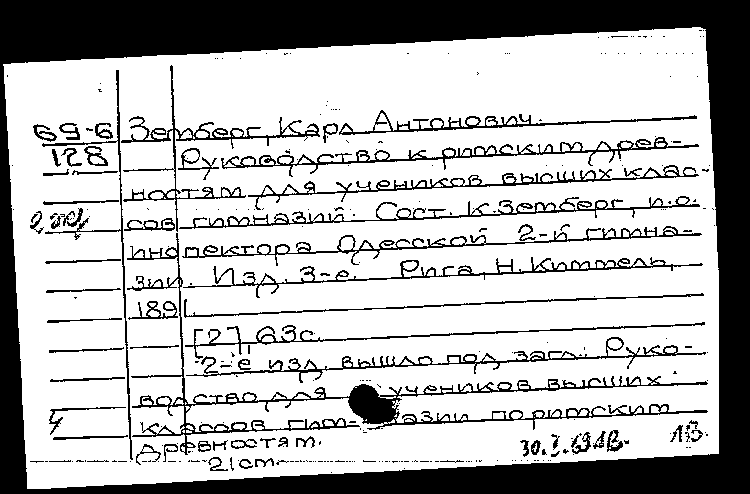 69-6 Земберг, Карл Антонович.
128 Руководство к римским древ-
ностям для учеников высших клас-
2 экз сов гимназий. Сост. К. Земберг, и.о.
инспектора Одесской 2-й гимна-
зии. Изд. 3-е. Рига, Н. Киммель,
1891.
[2], 63 с.
2-е изд. вышло под загл.: Руко-
водство для учеников высших
4 классов гимназии по римским
древностям.
21 см.
30.I.69 1В. 1В